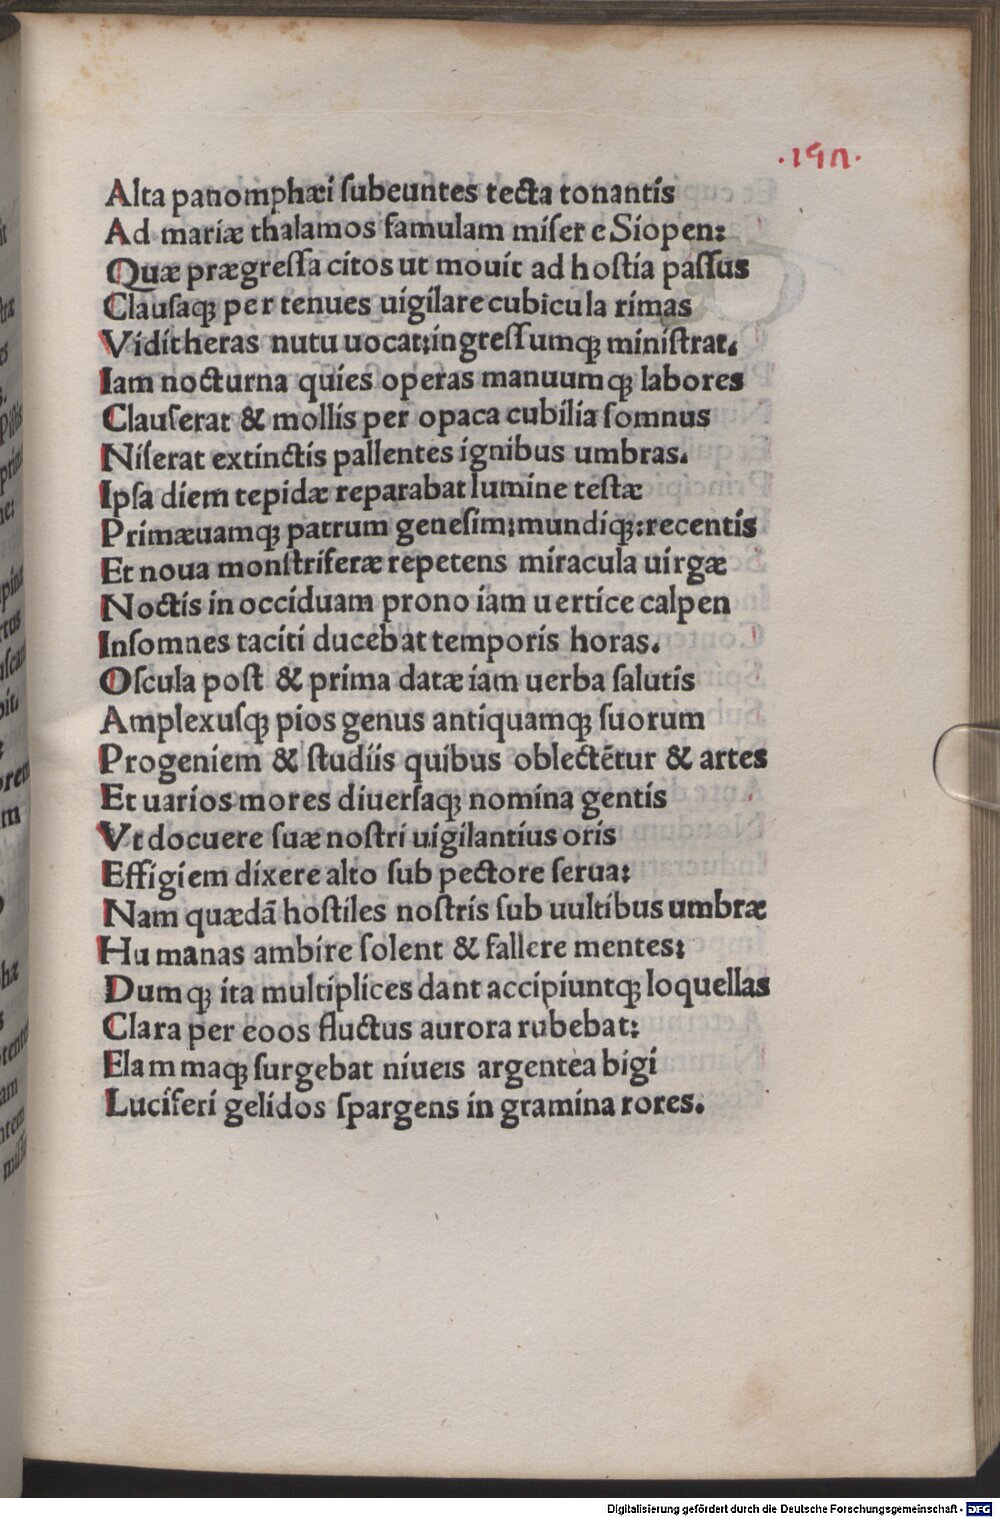 ·197·
Alta panomphæi ſubeuntes tecta tonantis
Ad mariæ thalamos famulam miſer e Siopen:
Quæ prægreſſa citos ut mouit ad hoſtia paſſus
Clauſaqꝫ per tenues uigilare cubicula rimas
Vidit heras nutu uocat: ingreſſumqꝫ miniſtrat.
Iam nocturna quies operas manuumqꝫ labores
Clauſerat & mollis per opaca cubilia ſomnus
Niſerat extinctis pallentes ignibus umbras.
Ipſa diem tepidæ reparabat lumine teſtæ
Primæuamqꝫ patrum geneſim: mundiqꝫ: recentis
Et noua monſtriferæ repetens miracula uirgæ
Noctis in occiduam prono iam uertice calpen
Inſomnes taciti ducebat temporis horas.
Oſcula poſt & prima datæ iam uerba ſalutis
Amplexuſqꝫ pios genus antiquamqꝫ ſuorum
Progeniem & ſtudiis quibus oblectētur & artes
Et uarios mores diuerſaqꝫ nomina gentis
Vt docuere ſuæ noſtri uigilantius oris
Effigiem dixere alto ſub pectore ſerua:
Nam quædā hoſtiles noſtris ſub uultibus umbræ
Humanas ambire ſolent & fallere mentes:
Dumqꝫ ita multiplices dant accipiuntqꝫ loquellas
Clara per eoos fluctus aurora rubebat:
Elammaqꝫ ſurgebat niueis argentea bigi
Luciferi gelidos ſpargens in gramina rores.
Digitalisierung gefördert durch die Deutsche Forschungsgemeinschaft - DFG